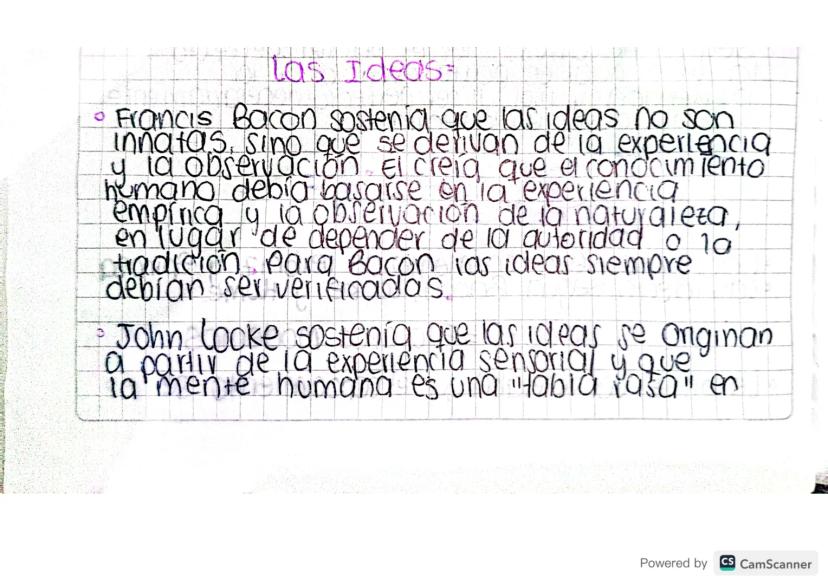 Las Ideas=
Francis Bacon sostenia que las ideas no son
innatas, sino que se derivan de la experiencia
y la observación. El creia que el conocimiento
humano debia basarse en la experiencia
empirica y la observacion de la naturaleza,
en lugar de depender de la autoridad o la
tradición. Para Bacon las ideas siempre
debian ser verificadas.
John Locke sostenia que las ideas se originan
a partir de la experiencia sensorial y que
la mente humana es una "tabla rasa" en
Powered by CS CamScanner